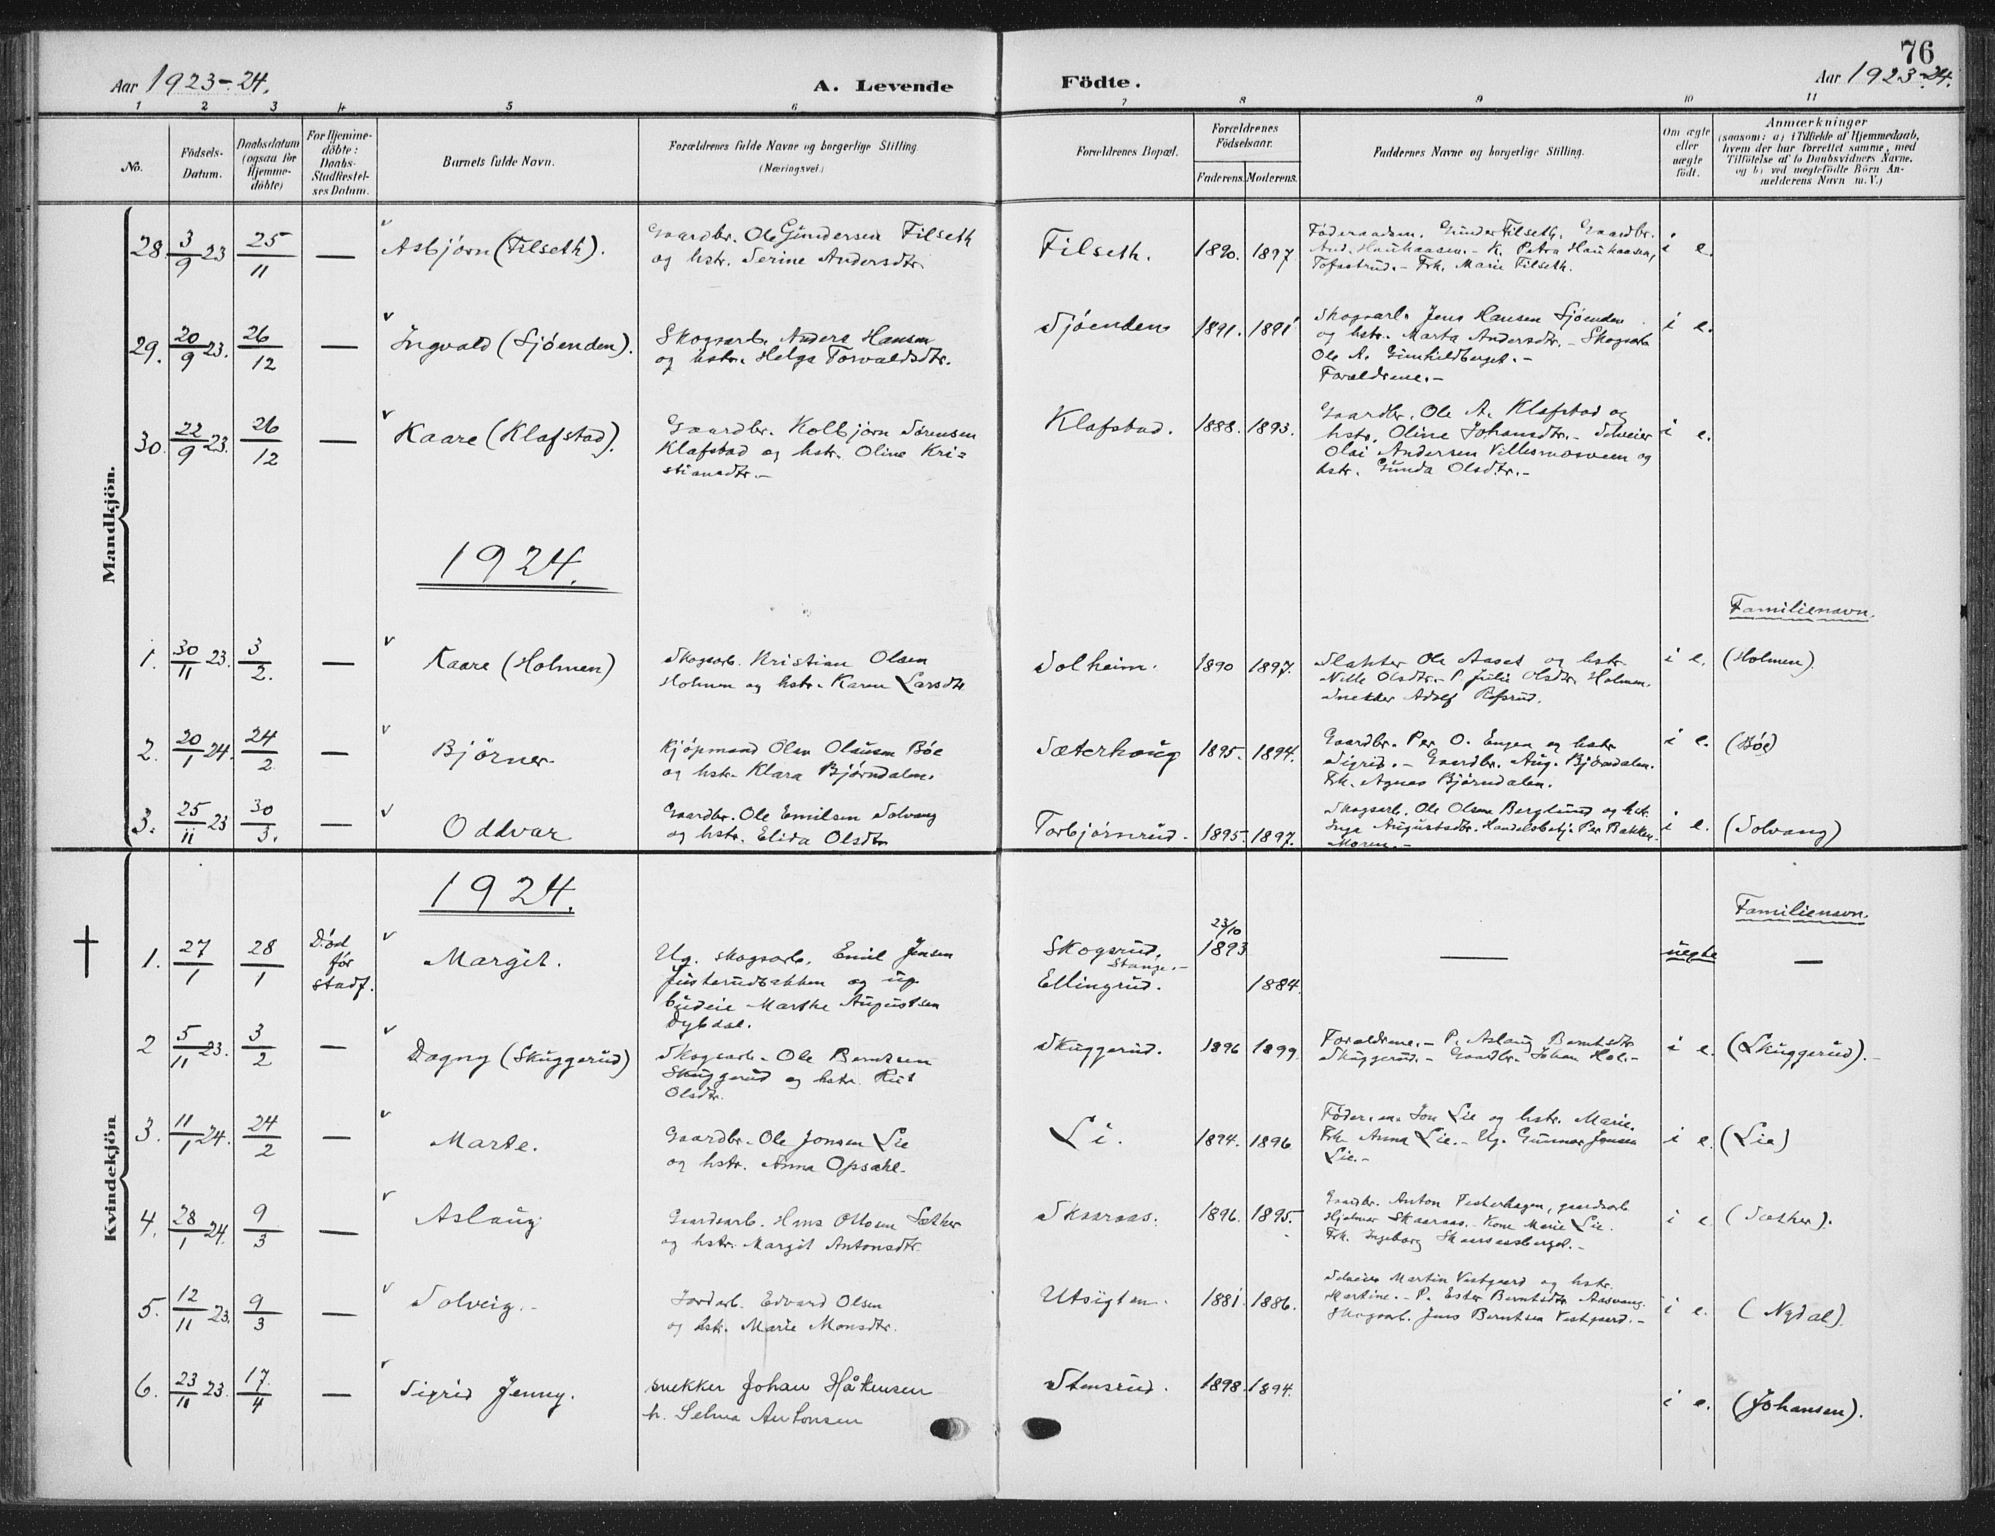 76
Aar 1923-24.
A. Levende Födte.
Aar 1923-24.
1 2 3 4 5 6 7 8 9 10 11
No.
Födsels-Datum.
Daabsdatum (ogsaa for Hjemme-döbte)
For Hjemme-döbte: Daabs-Stadfestel-ses Datum.
Barnets fulde Navn.
Forældrenes fulde Navne og borgerlige Stilling
(Næringsvei.)
Forældrenes Bopæl.
Forældrenes Födselsaar.
Faderens. Moderens.
Faddernes Navne og borgerlige Stilling.
Om ægte eller uægte födt.
Anmærkninger
(saasom: a) i Tilfælde af Hjemmedaab,
hvem der har forrettet samme, med
Tilföielse af to Daabsvidners Navne.
og b) ved uægtefödte Börn An-
melderens Navn m. V.)
Mandkjön.
28. 3/9 23 25/11 — Asbjørn (Filseth).
Gaardbr. Ole Gundersen Filseth
og hstr. Serine Andersdtr.
Filseth. 1890. 1897
Føderaadsm. Gunder Filseth, Gaardbr.
And. Hauhaasen. - K. Petra Hauhaasen,
Tofastrud. - Frk. Marie Filseth.
i e.
29. 20/9 23. 26/12 — Ingvald (Sjøenden).
Skogsarb. Anders Hansen
og hstr. Helga Torvaldsdtr.
Sjøenden 1891. 1891
Skogsarb. Jens Hansen Sjøenden
og hstr. Marta Andersdtr. - Skogsarb
Ole A. Gunhildberget. -
Forældrene. -
i e.
30. 22/9 23. 26/12 — Kaare (Klafstad).
Gaardbr. Kolbjørn Sørensen
Klafstad og hstr. Oline Kri=
stiansdtr. -
Klafstad. 1888. 1893.
Gaardbr. Ole A. Klafstad og
hstr. Oline Johansdtr. - Sveiser
Olai Andersen Villesmosveen og
hstr. Gunda Olsdtr. -
i e.
1924.
Familienavn.
1. 30/11 23. 3/2. — Kaare (Holmen)
Skogsarb. Kristian Olsen
Holmen og hstr. Karen Larsdtr
Solheim. 1890 1897.
Slakter Ole Aaset og hstr
Nille Olsdtr. - P. Julie Olsdtr. Holmen.
Snekker Adolf Rofsrud.
i e. (Holmen).
2. 20/1 24. 24/2. — Bjørner.
Kjøpmand Olav Olausen Bøe
og hstr. Klara Bjørndalen.
Sæterhaug 1895. 1894.
Gaardbr. Per O. Engen og hstr
Sigrid. - Gaardbr. Aug. Bjørndalen.
Frk. Agnes Bjørndalen.
i e. (Bøe)
3. 25/11 23 30/3. — Oddvar
Gaardbr. Ole Emilsen Solvang
og hstr. Elida Olsdtr
Torbjørnrud. 1895. 1897.
Skogsarb. Ole Olsen Berglund og hstr.
Inga Augustsdtr. Handelsbetj. Per Bakken.
Moren. -
i e. (Solvang)
Kvindekjön
1924.
Familienavn.
1. 27/1 28/1 Død før stadf. Margit.
Ug. skogsarb. Emil Jensen
Justerudbakken og ug.
budeie Marthe Augustsen
Dybdal.
Skogsrud, Stange. -
Ellingrud.
23/10
1893
1884.
— uegte —
2 5/11 23. 3/2 — Dagny (Skuggerud)
Skogsarb. Ole Berntsen
Skuggerud og hstr. Rut
Olsdtr.
Skuggerud. 1896 1899
Forældrene. - P. Aslaug Berntsdtr
Skuggerud. - Gaardbr. Johan Hol. -
i e. (Skuggerud). -
3. 11/1 24. 24/2 — Marte.
Gaardbr. Ole Jonsen Lie
og hstr. Anna Opsahl.
Li. 1894. 1896
Føder.m. Jon Lie og hstr. Marie.
Frk. Anna Lie. - Ug. Gunnar Jonsen
Lie. -
i e. (Lie)
4. 28/1 24. 9/3 — Aslaug
Gaardsarb. Hans Ottosen Sæther
og hstr. Margit Antonsdtr.
Skaaraas. 1896. 1895.
Gaardbr. Anton Festerhagen, gaardsarb
Hjalmar Skaaraas. - Kone Marie Lie.
Frk. Ingeborg Skaaraasberget. -
i e. (Sæther).
5. 12/11 23. 9/3 — Solveig. -
Jordarb. Edvard Olsen
og hstr. Marie Monsdtr.
Utsigten. 1881. 1886.
Sveiser Martin Vestgaard og hstr.
Martine. - P. Ester Berntsdtr Aasvang.
Skogsarb. Jens Berntsen Vestgaard. -
i e. (Nydal).
6. 23/11 23. 17/4 — Sigrid Jenny.
snekker Johan Håkensen
h. Selma Antonsen
Stensrud. 1898. 1894.
i e. (Johansen).